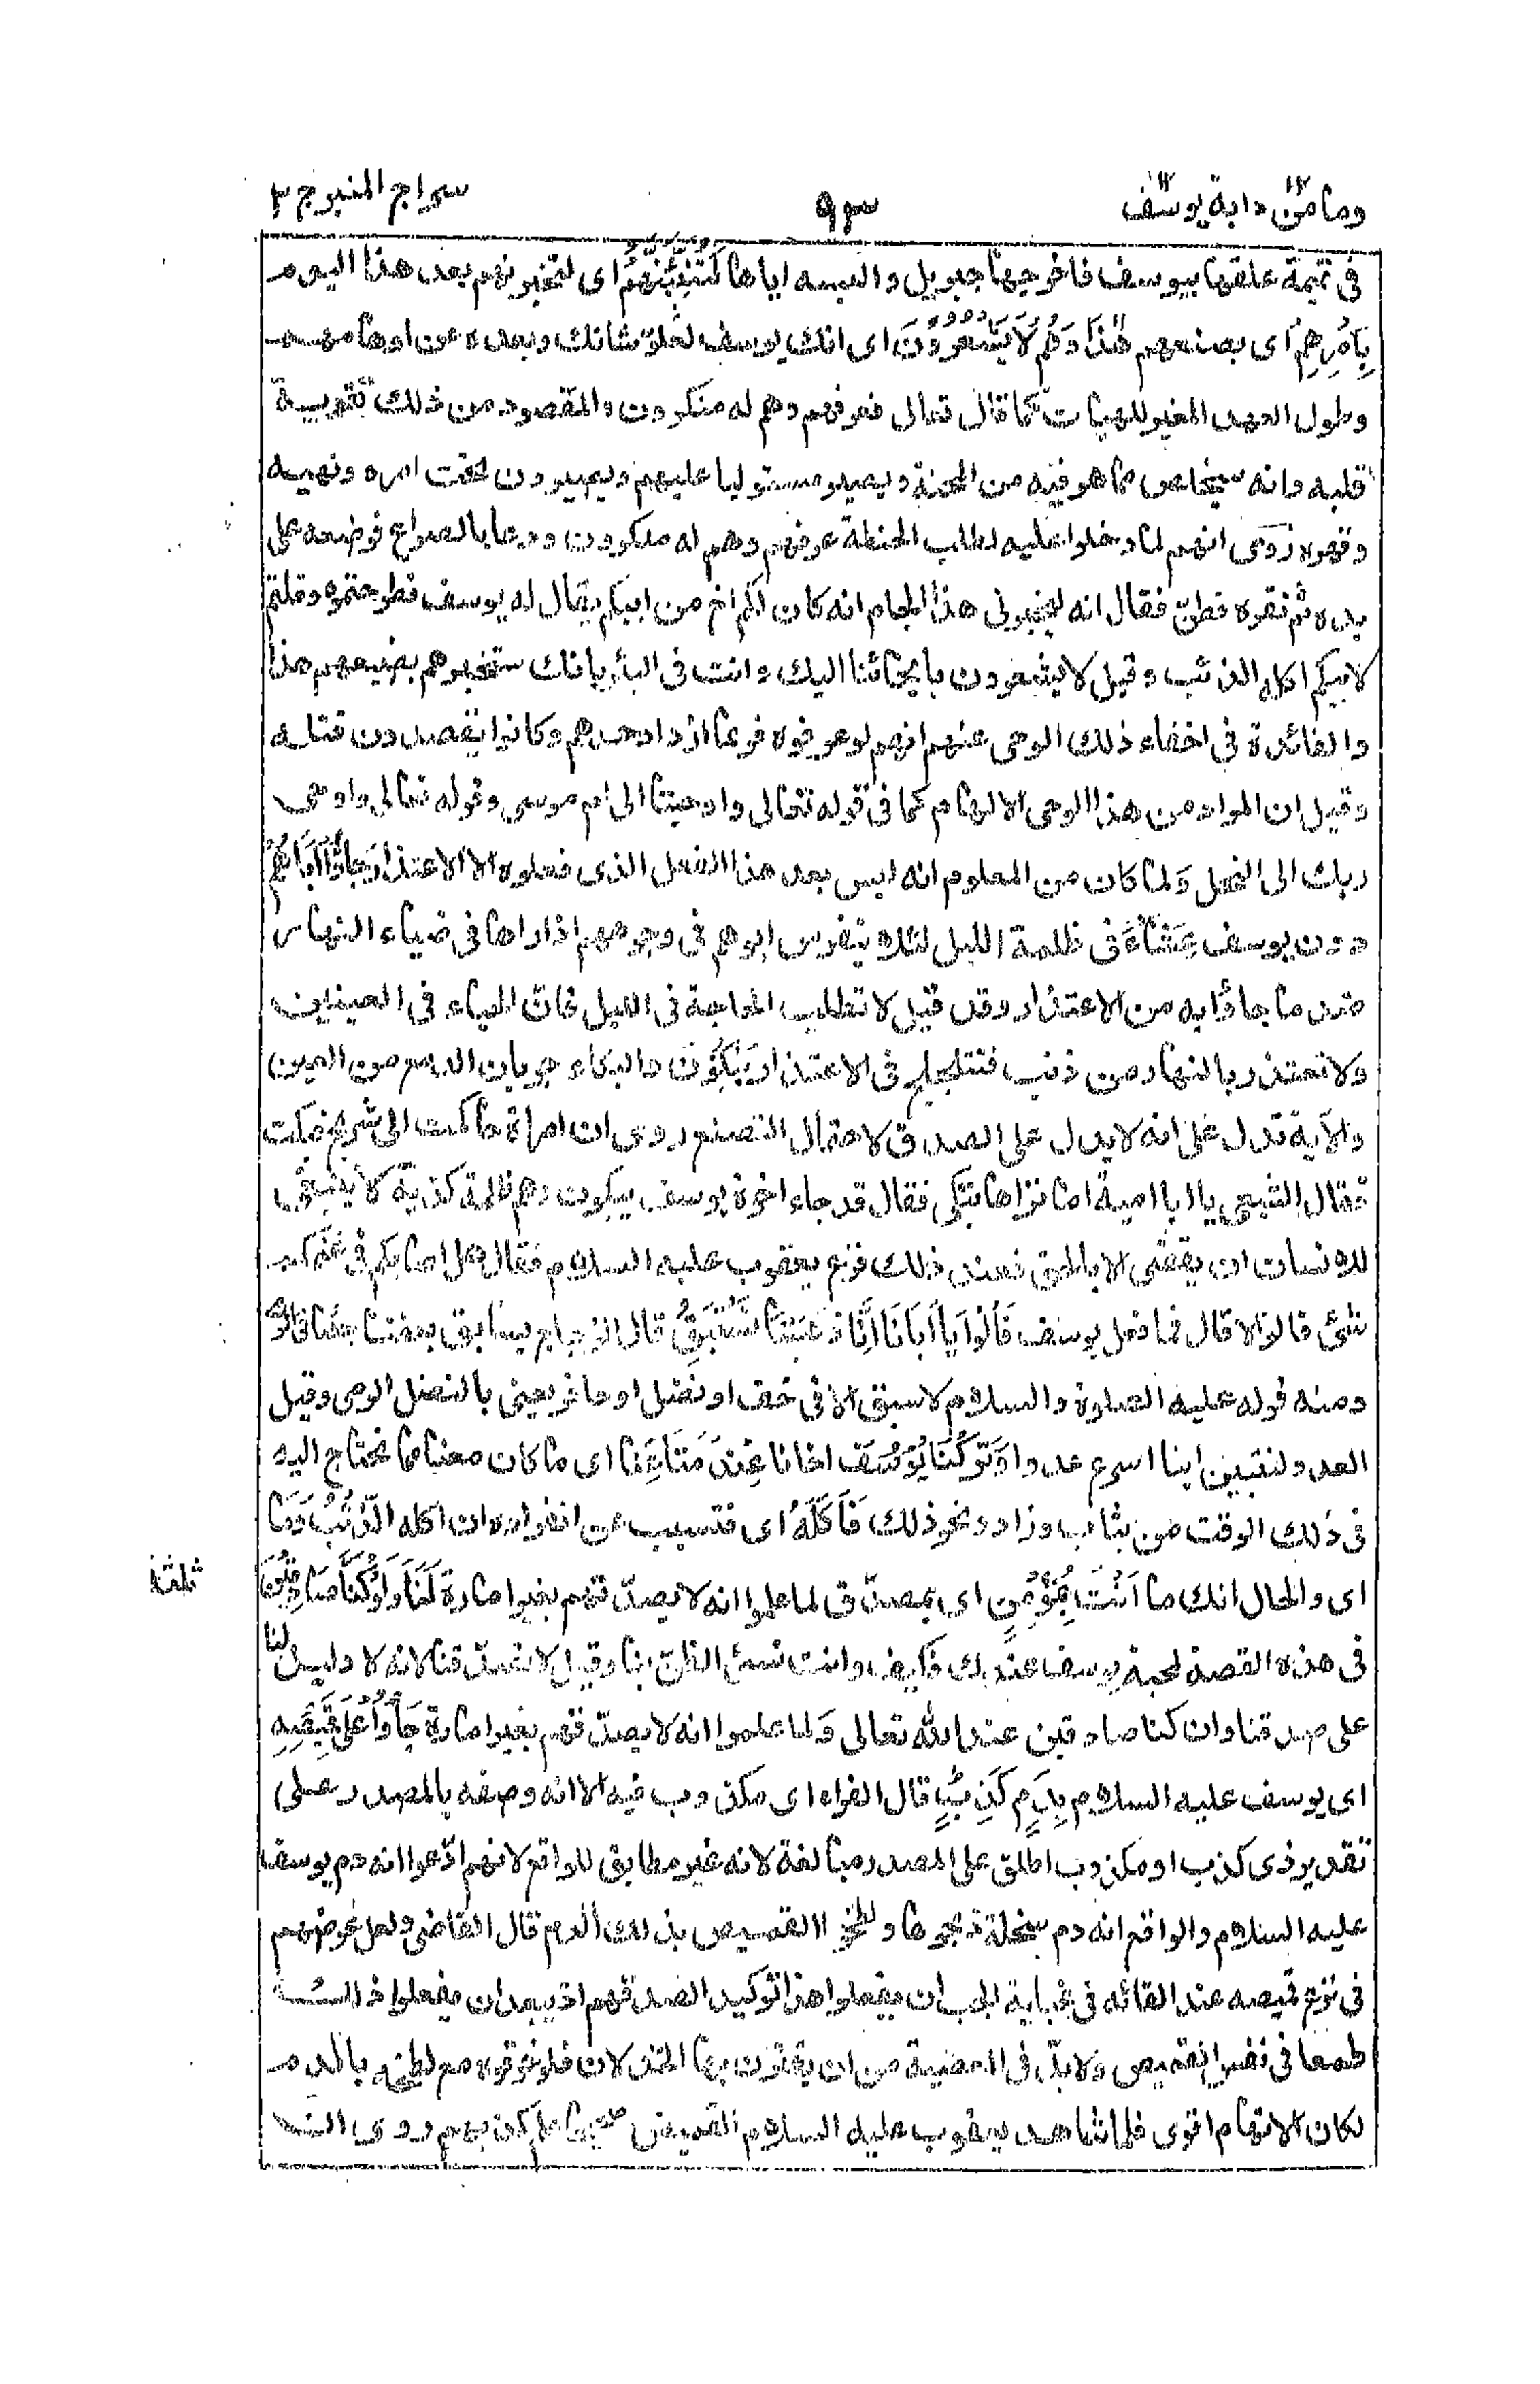 وما من دابة يوسف ٩٣ سراج المنير ج ٢
فى تميمة علقها بيوسف فاخرجها جبريل والبسه اياها لَتُنَبِّئَنَّهُمْ اى لتخبرنهم بعد هذا اليوم
بِاَمْرِهِمْ اى بصنعهم هٰذَا وَهُمْ لَا يَشْعُرُوْنَ اى انك يوسف لعلوّ شانك وبعده عن اوهامهم
وطول العهد المغير للهيات كما قال تعالى فعرفهم وهم له منكرون والمقصود من ذلك تقوية
قلبه وانه سيخلص مما هو فيه من المحنة ويصير مستوليا عليهم ويصيرون تحت امره ونهيه
وقهره رُوى انهم لما دخلوا عليه لطلب الحنطة عرفهم وهم له منكرون ودعا بالصواع فوضعه على
يده ثم نقره فطنّ فقال انه ليخبرنى هذا الجام انه كان لكم اخ من ابيكم يقال له يوسف فطرحتموه وقلتم
لابيكم اكله الذئب وقيل لا يشعرون بايحائنا اليك وانت فى البئر بانك ستخبرهم بصنيعهم هذا
والفائدة فى اخفاء ذلك الوحى عنهم انهم لو عرفوه فربما ازداد حسدهم وكانوا يقصدون قتله
وقيل ان المراد من هذا الوحى الالهام كما فى قوله تعالى واوحينا الى ام موسى وقوله تعالى واوحى
ربك الى النحل وَلما كان من المعلوم انه ليس بعد هذا الفعل الذى فعلوه الا الاعتذار وَجَاؤُا اَبَاهُمْ
دون يوسف عِشَاءً فى ظلمة الليل لئلا يتفرس ابوهم فى وجوههم اذا راها فى ضياء النهار
ضد ما جاؤا به من الاعتذار وقد قيل لا تطلب الحاجة فى الليل فان الحياء فى العينين
ولا تعتذر بالنهار من ذنب فتتلجلج فى الاعتذار يَبْكُوْنَ والبكاء جريان الدمع من العين
والآية تدل على انه لا يدل على الصدق لاحتمال التصنع روى ان امراة حاكمت الى شريح فبكت
فقال الشعبى يا ابا امية اما تراها تبكى فقال قد جاء اخوة يوسف يبكون وهم ظلمة كذبة لا ينبغى
للانسان ان يقضى الا بالحق فعند ذلك فزع يعقوب عليه السلام فقال هل اصابكم فى غنمكم
شئ قالوا لا قال فما فعل يوسف قَالُوْا يَا اَبَانَا اِنَّا ذَهَبْنَا نَسْتَبِقُ قال الزجاج يسابق بعضنا بعضا فى الرمى
ومنه قوله عليه الصلوة والسلام لا سبق الا فى خف او نصل او حافر يعنى بالنصل الرمى وقيل
العدو لنتبين اينا اسرع عدوا وَتَرَكْنَا يُوْسُفَ اخانا عِنْدَ مَتَاعِنَا اى ما كان معنا مما نحتاج اليه
فى ذلك الوقت من ثياب وزاد ونحو ذلك فَاَكَلَهُ اى فتسبب عن انفراده ان اكله الذِّئْبُ وَمَا
اى والحال انك ما اَنْتَ بِمُؤْمِنٍ اى بمصدّق لما علموا انه لا يصدّقهم بغير امارة لَنَا وَلَوْ كُنَّا صَادِقِيْنَ
ثلثة
فى هذه القصة لمحبة يوسف عندك فكيف وانت تسئ الظنّ بنا وقيل لا تصدّقنا لانه لا دليل لنا
على صدقنا وان كنا صادقين عند الله تعالى وَلما علموا انه لا يصدّقهم بغير امارة جَاؤُا عَلٰى قَمِيْصِهِ
اى يوسف عليه السلام بِدَمٍ كَذِبٍ قال الفراء اى مكذوب فيه الا انه وصفه بالمصدر على
تقدير ذى كذب او مكذوب اطلق على المصدر مبالغة لانه غير مطابق للواقع لانهم ادّعوا انه دم يوسف
عليه السلام والواقع انه دم سخلة ذبحوها ولطخوا القميص بذلك الدم قال القاضى ولعل غرضهم
فى نزع قميصه عند القائه فى غيابة الجب ان يفعلوا هذا توكيد الصدقهم اذ يبعد ان يفعلوا ذلك
طمعا فى نفس القميص ولا بدّ فى المعصية من ان يقترن بها الخذلان فلو خرقوه مع لطخه بالدم
لكان الاتهام اقوى فلما شاهد يعقوب عليه السلام القميص صحيحا علم كذبهم روى انه